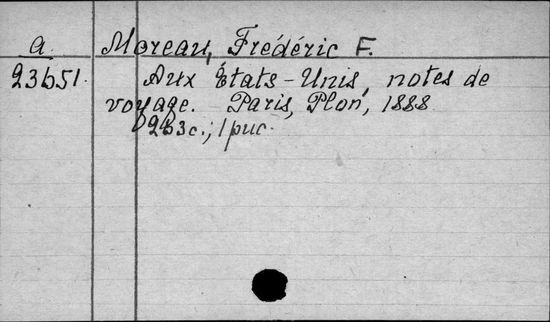 a. Moreau, Frédéric F.
23b51. Aux États-Unis, notes de
voyage. Paris, Plon, 1888
263 c.; 1 рис.